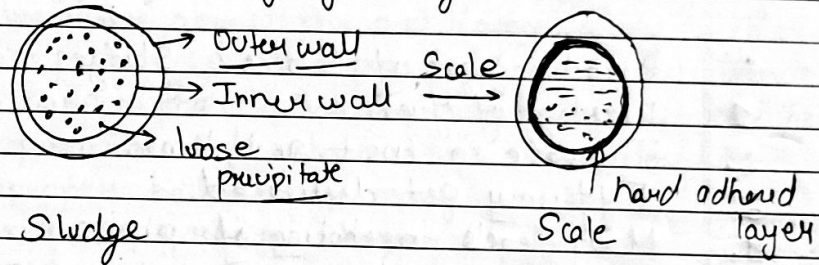 Outer wall
Scale
Inner wall
loose
precipitate
hard adherd
layer
Sludge
Scale